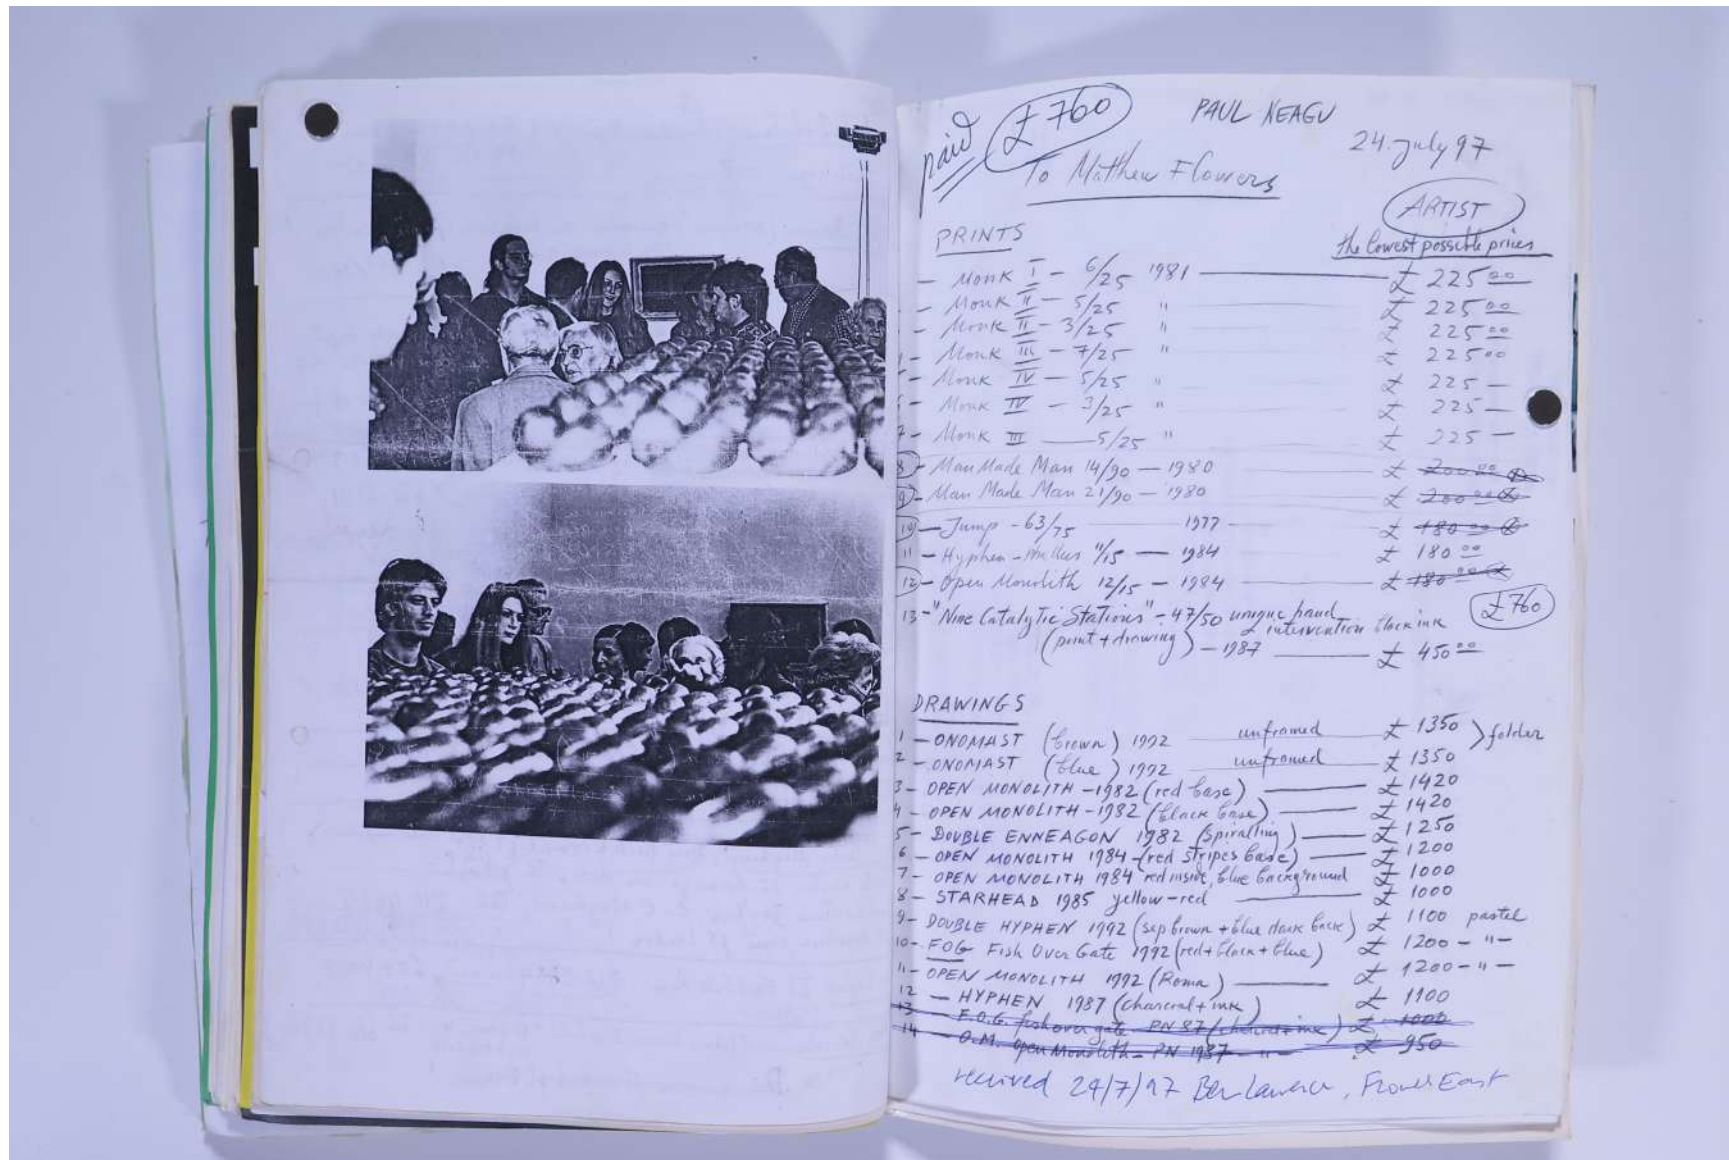 paid £760 PAUL NEAGU
24 July 97
To Matthew Flowers
ARTIST
PRINTS the lowest possible prices
- Monk I - 6/25 1981 £ 225 00
- Monk II - 5/25 " £ 225 00
- Monk II - 3/25 " £ 225 00
- Monk III - 7/25 " £ 225 00
- Monk IV - 5/25 " £ 225 -
- Monk IV - 3/25 " £ 225 -
7 - Monk III - 5/25 " £ 225 -
8 - Man Made Man 14/90 - 1980 £ 200 00
9 - Man Made Man 21/90 - 1980 £ 200 00
10 - Jump - 63/75 1977 £ 180 00
11 - Hyphen - 11/15 - 1984 £ 180 00
12 - Open Monolith 12/15 - 1984 £ 180 00
£760
13 - "Nine Catalytic Stations" - 47/50 unique hand
(print + drawing) - 1987 intervention black ink £ 450 00
DRAWINGS
1 - ONOMAST (brown) 1992 unframed £ 1350 } folder
2 - ONOMAST (blue) 1992 unframed £ 1350
3 - OPEN MONOLITH - 1982 (red base) £ 1420
4 - OPEN MONOLITH - 1982 (black base) £ 1420
5 - DOUBLE ENNEAGON 1982 (spiralling) £ 1250
6 - OPEN MONOLITH 1984 - (red stripes base) £ 1200
7 - OPEN MONOLITH 1984 red inside, blue background £ 1000
8 - STARHEAD 1985 yellow-red £ 1000
9 - DOUBLE HYPHEN 1992 (sep brown + blue dark back) £ 1100 pastel
10 - FOG Fish Over Gate 1992 (red + black + blue) £ 1200 - " -
11 - OPEN MONOLITH 1992 (Roma) £ 1200 - " -
12 - HYPHEN 1987 (charcoal + ink) £ 1100
13 - F.O.G. fish over gate PN 87 (charcoal + ink) £ 1000
14 - O.M. Open Monolith - PN 1987 - " - £ 950
received 24/7/97 Ben , Flowers East